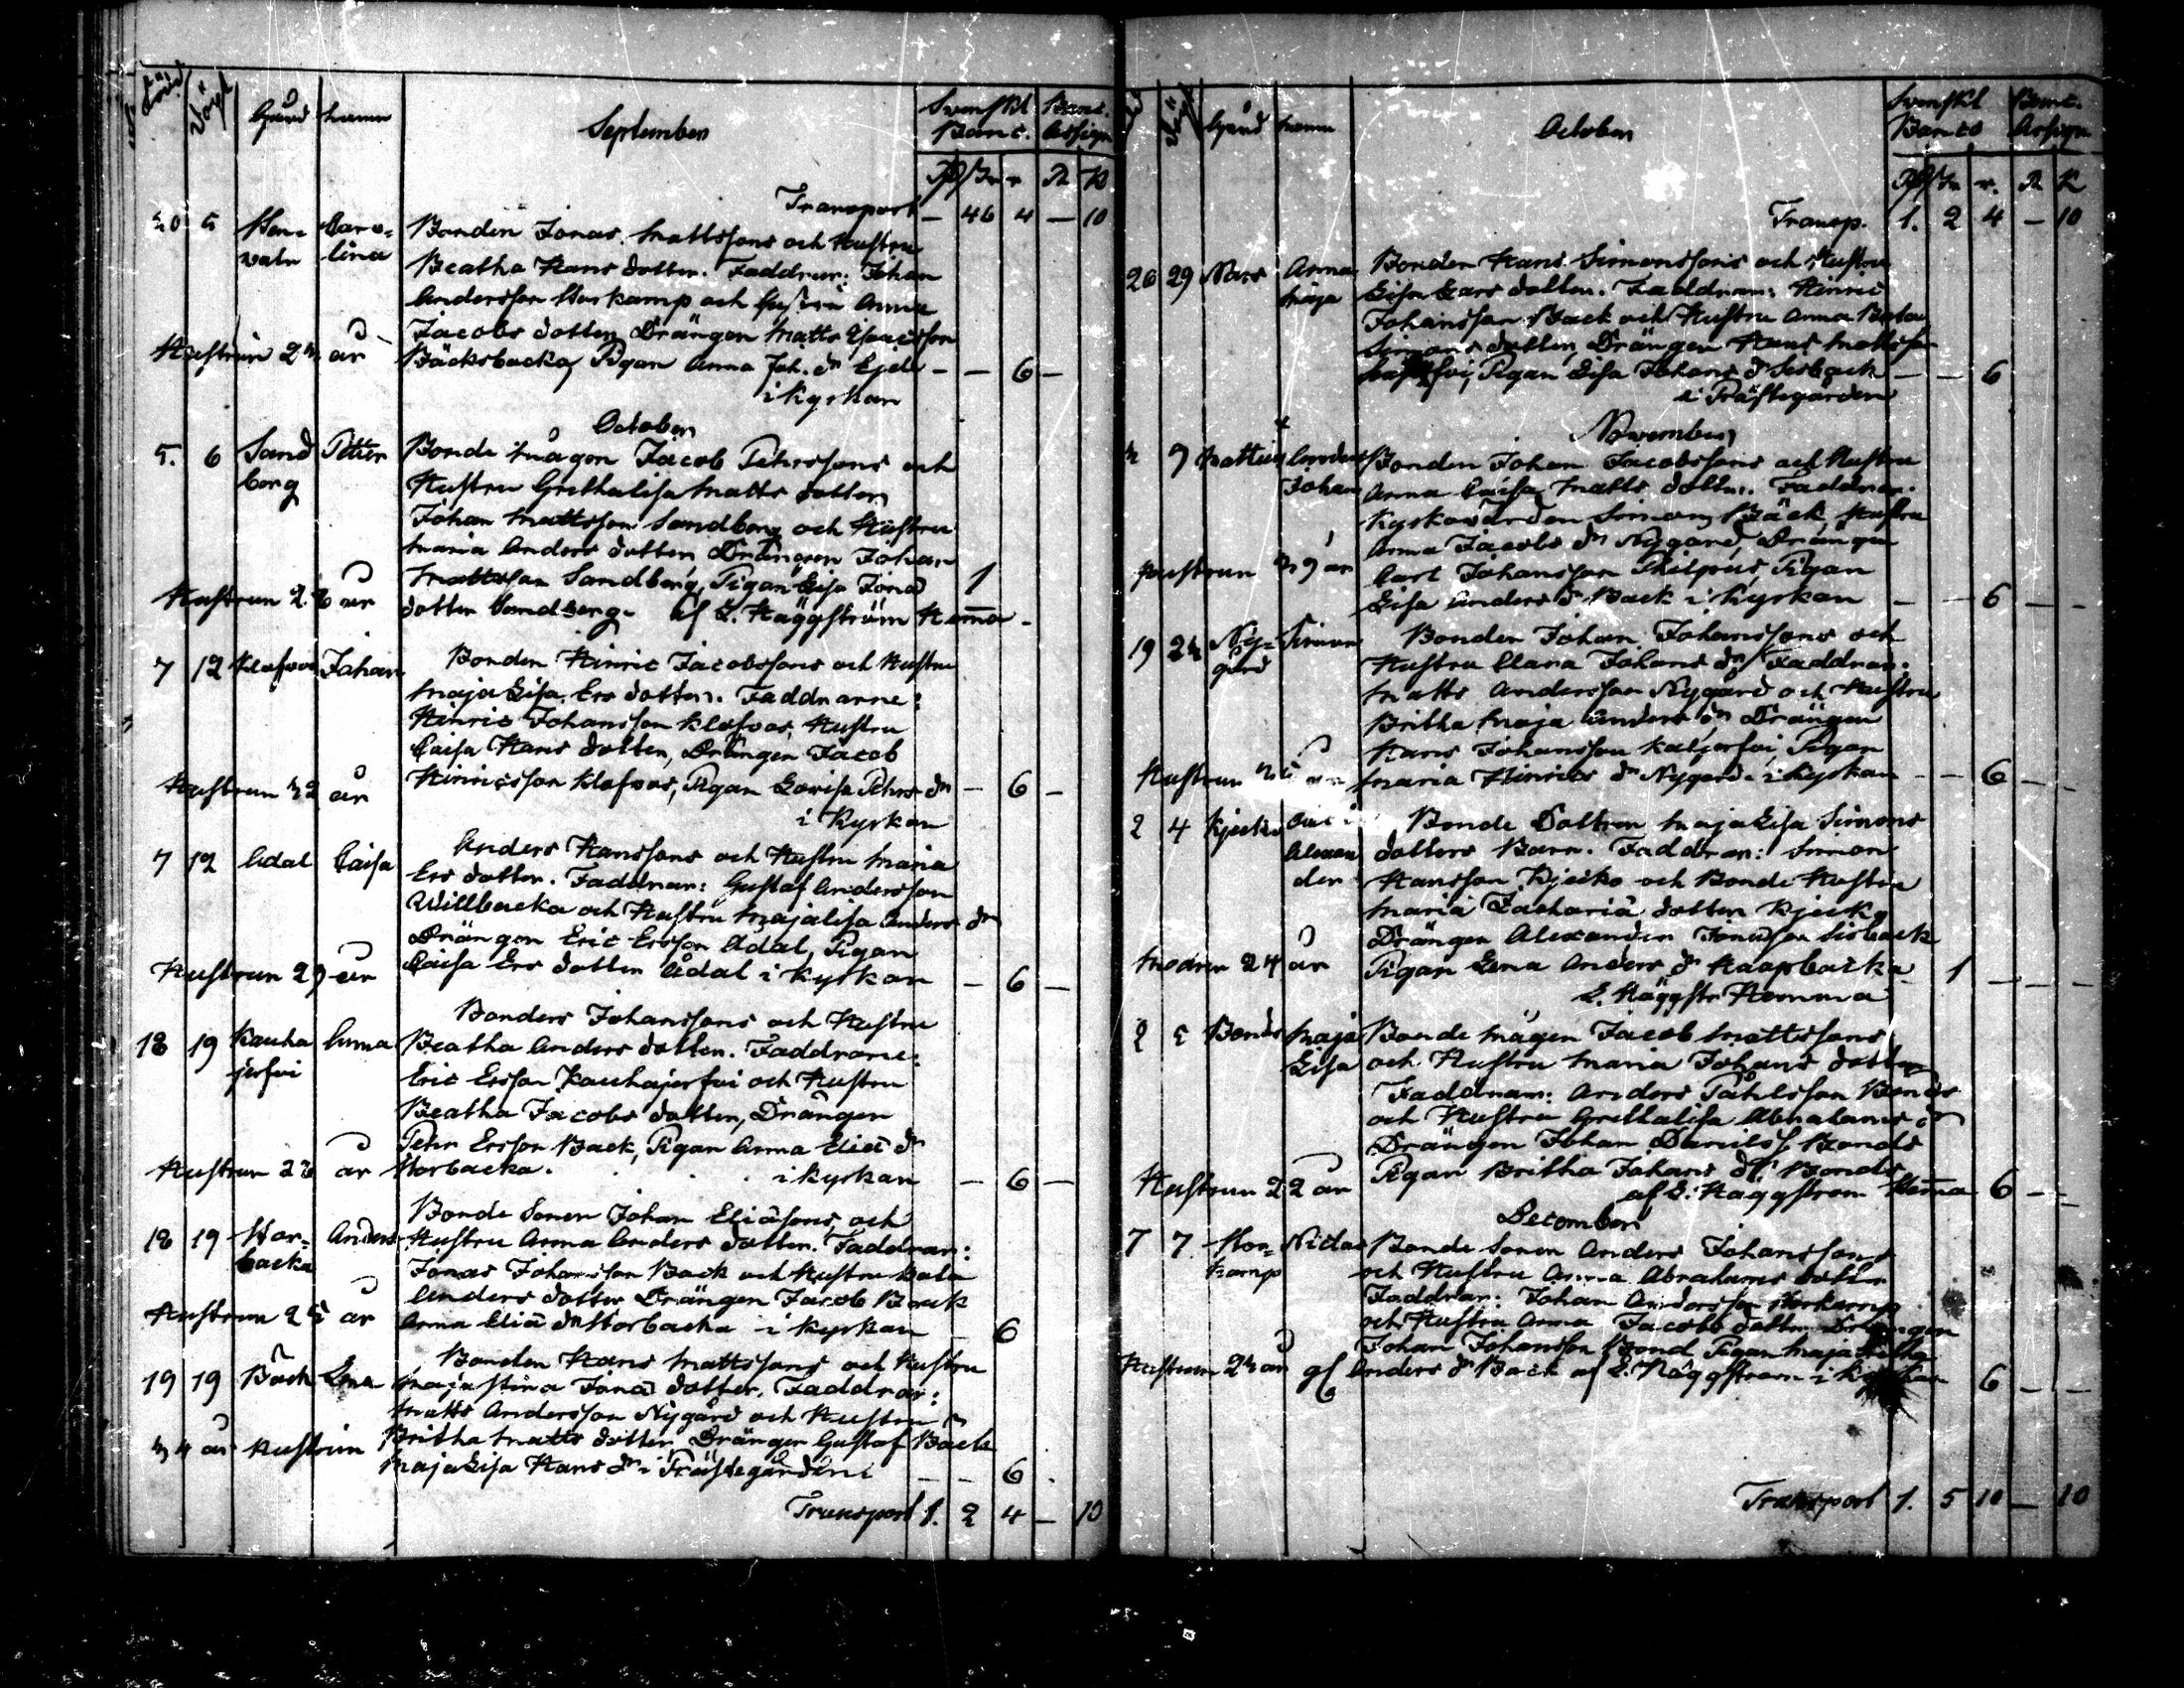 Gård namn September Svenskt Banc. Banc. Assign
Transport — 46 4 — 10
5 Caro-
lina
Bonden Jonas Mattssons och Hustru
Beatha Hans dotter. Faddrar: Johan
Andersson Storkamp och Hustru Anna
Jacobs dotter, Drängen Matts
Hustrun år Bäcksbacka, Pigan Anna Joh. dr — — 6 —
i kyrkan
October
5. 6 Sand Petter Bonde mågen Jacob Pehrssons och
berg Hustru Grethalisa Matts dotter
Johan Mattsson Sandberg och Hustru
Maria Anders dotter, Drängen Johan
Mattsson Sandberg, Pigan Lisa Jonæ 1
Hustrun år dotter Sandberg. af L. Häggström Hema
7 12 Klafvos Johan Bonden Hinric Jacobssons och Hustru
Maja Lisa Ers dotter. Faddrarne:
Hinric Johansson Klafvos, Hustru
Caisa Hans dotter, Drängen Jacob
Hustrun 32 år Hinricsson Klafvos, Pigan Lovisa Pehrs dr — 6 —
i Kyrkan
7 12 Ådal Caisa Anders Hanssons och Hustru Maria
Ers dotter. Faddrar: Gustaf Andersson
Willbacka och Hustru Majalisa Anders dr
Drängen Eric Ersson Ådal, Pigan
Hustrun 29 år Caisa Ers dotter Ådal i kyrkan — 6 —
18 19 Kauha Anna Bonders Johanssons och Hustru
jerfvi Beatha Anders dotter. Faddrarne:
Eric Ersson Kauhajerfvi och Hustru
Beatha Jacobs dotter, Drängen
Pehr Ersson Back, Pigan Anna Eliæ dr
Hustrun år Storbacka. i kyrkan — 6 —
18 19 Stor- Anders Bonde Sonen Johan Eliæsons och
backa Hustru Anna Anders dotter. Faddrar:
Jonas Johansson Back och Hustru Bata
Anders dotter Drängen Jacob Back
Hustrun 25 år Anna Eliæ dr Storbacka i kyrkan 6
19 19 Bäck Lena Bonden Hans Mattssons och Hustru
Majastina Jonæ dotter. Faddrar:
Matts Andersson Nygård och Hustru
34 år Hustrun Britha Matts dotter Drängen Gustaf Back
Maja Lisa Hans dr i Prästegården — — 6
Transport 1. 2 4 — 10
Gård namn October Svenskt Banco Banc. Assign
Transp. 1. 2 4 — 10
26 29 Anna Bonden Hans Simonssons och Hustru
Maja Lisa Lars dotter. Faddrar: Hinric
Johansson Back och Hustru Anna Bata
Simons dotter, Drängen Hans Mattsson
Pigan Lisa Johans dr — — 6
i Prästegården
November
9 Anders Bonden Johan Jacobssons och Hustru
Johan Anna Caisa Matts dotter. Faddrar.
Kyrkovärden Simon Bäck, Hustru
Anna Jacobs dr Nygård, Drängen
Hustrun 39 år Carl Johansson Philpus, Pigan
Lisa Anders dr Back i Kyrkan — — 6 — —
19 24 Ny- Simon Bonden Johan Johanssons och
gård Hustru Clara Johans dr Faddrar.
Matts Andersson Nygård och Hustru
Britha Maja Anders dr Drängen
Hans Johansson Kaljerfvi Pigan
Hustrun Maria Hinrics dr Nygård i kyrkan — — 6 — —
2 4 Kjecko Alexan
der
Bonde Dottren Maja Lisa Simons
dotters Barn. Faddrar: Simon
Hansson Kjecko och Bonde Hustru
Maria Zachariæ dotter Kjecko
Drängen Alexander Jonæson
Modren 24 år Pigan Lena Anders dr Kaapbacka 1 — —
L. Häggstr. Hemma
2 5 Bonds Maja Bonde mågen Jacob Mattssons
Lisa och Hustru Maria Johans dotter
Faddrar: Anders Påhlsson Bonds
och Hustru Grethalisa Abrahams dr
Drängen Johan Danilss. Bonds
Hustrun 22 år Pigan Britha Johans dr Bonds
af L. Häggström Hema 6 — —
December
7 7 Stor- Bonde Sonen Anders Johanssons
kamp och Hustru Anna Abrahams dotter
Faddrar: Johan Andersson Storkamp
och Hustru Anna Jacobs dotter Drängen
Johan Johansson Bond Pigan Maja
Hustrun år Anders dr Back af L. Häggström i kyrkan 6 — —
Transport 1. 5 10 — 10